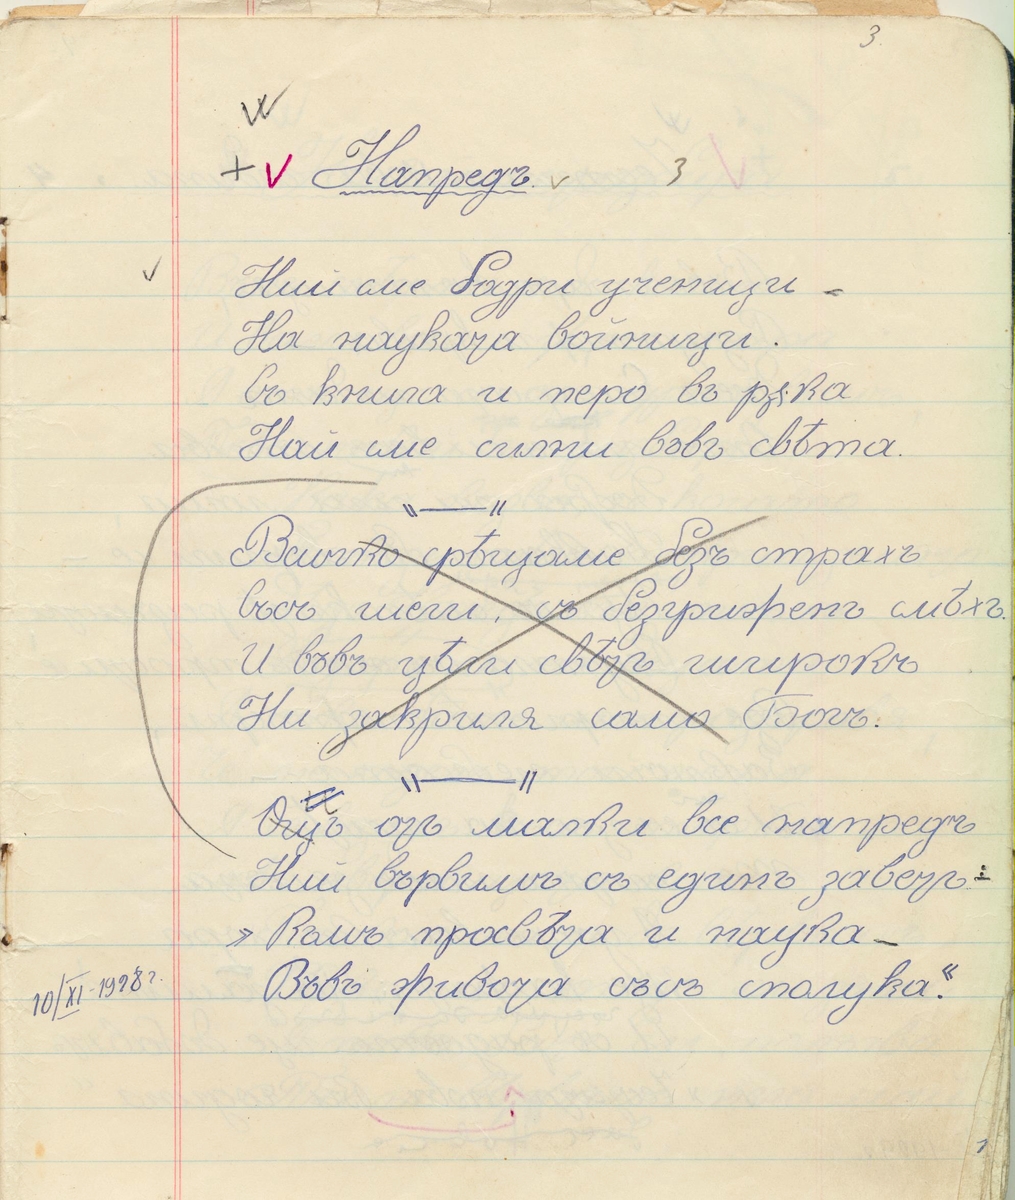 3.
Напредъ.
3
Ний сме бодри ученици -
На науката войници.
Съ книга и перо въ рѫка
Най сме силни вовъ свѣта.
"—"
Всичко срѣщаме безъ страхъ
Съсъ песни, съ безгриженъ смѣхъ.
И вовъ цѣли свѣтъ широкъ
Ни закриля само Богъ.
"—"
Още отъ малки все напредъ
Ний вървимъ съ единъ заветъ:
» Къмъ просвѣта и наука -
Вовъ живота съсъ сполука."
10/XI-1928 г.